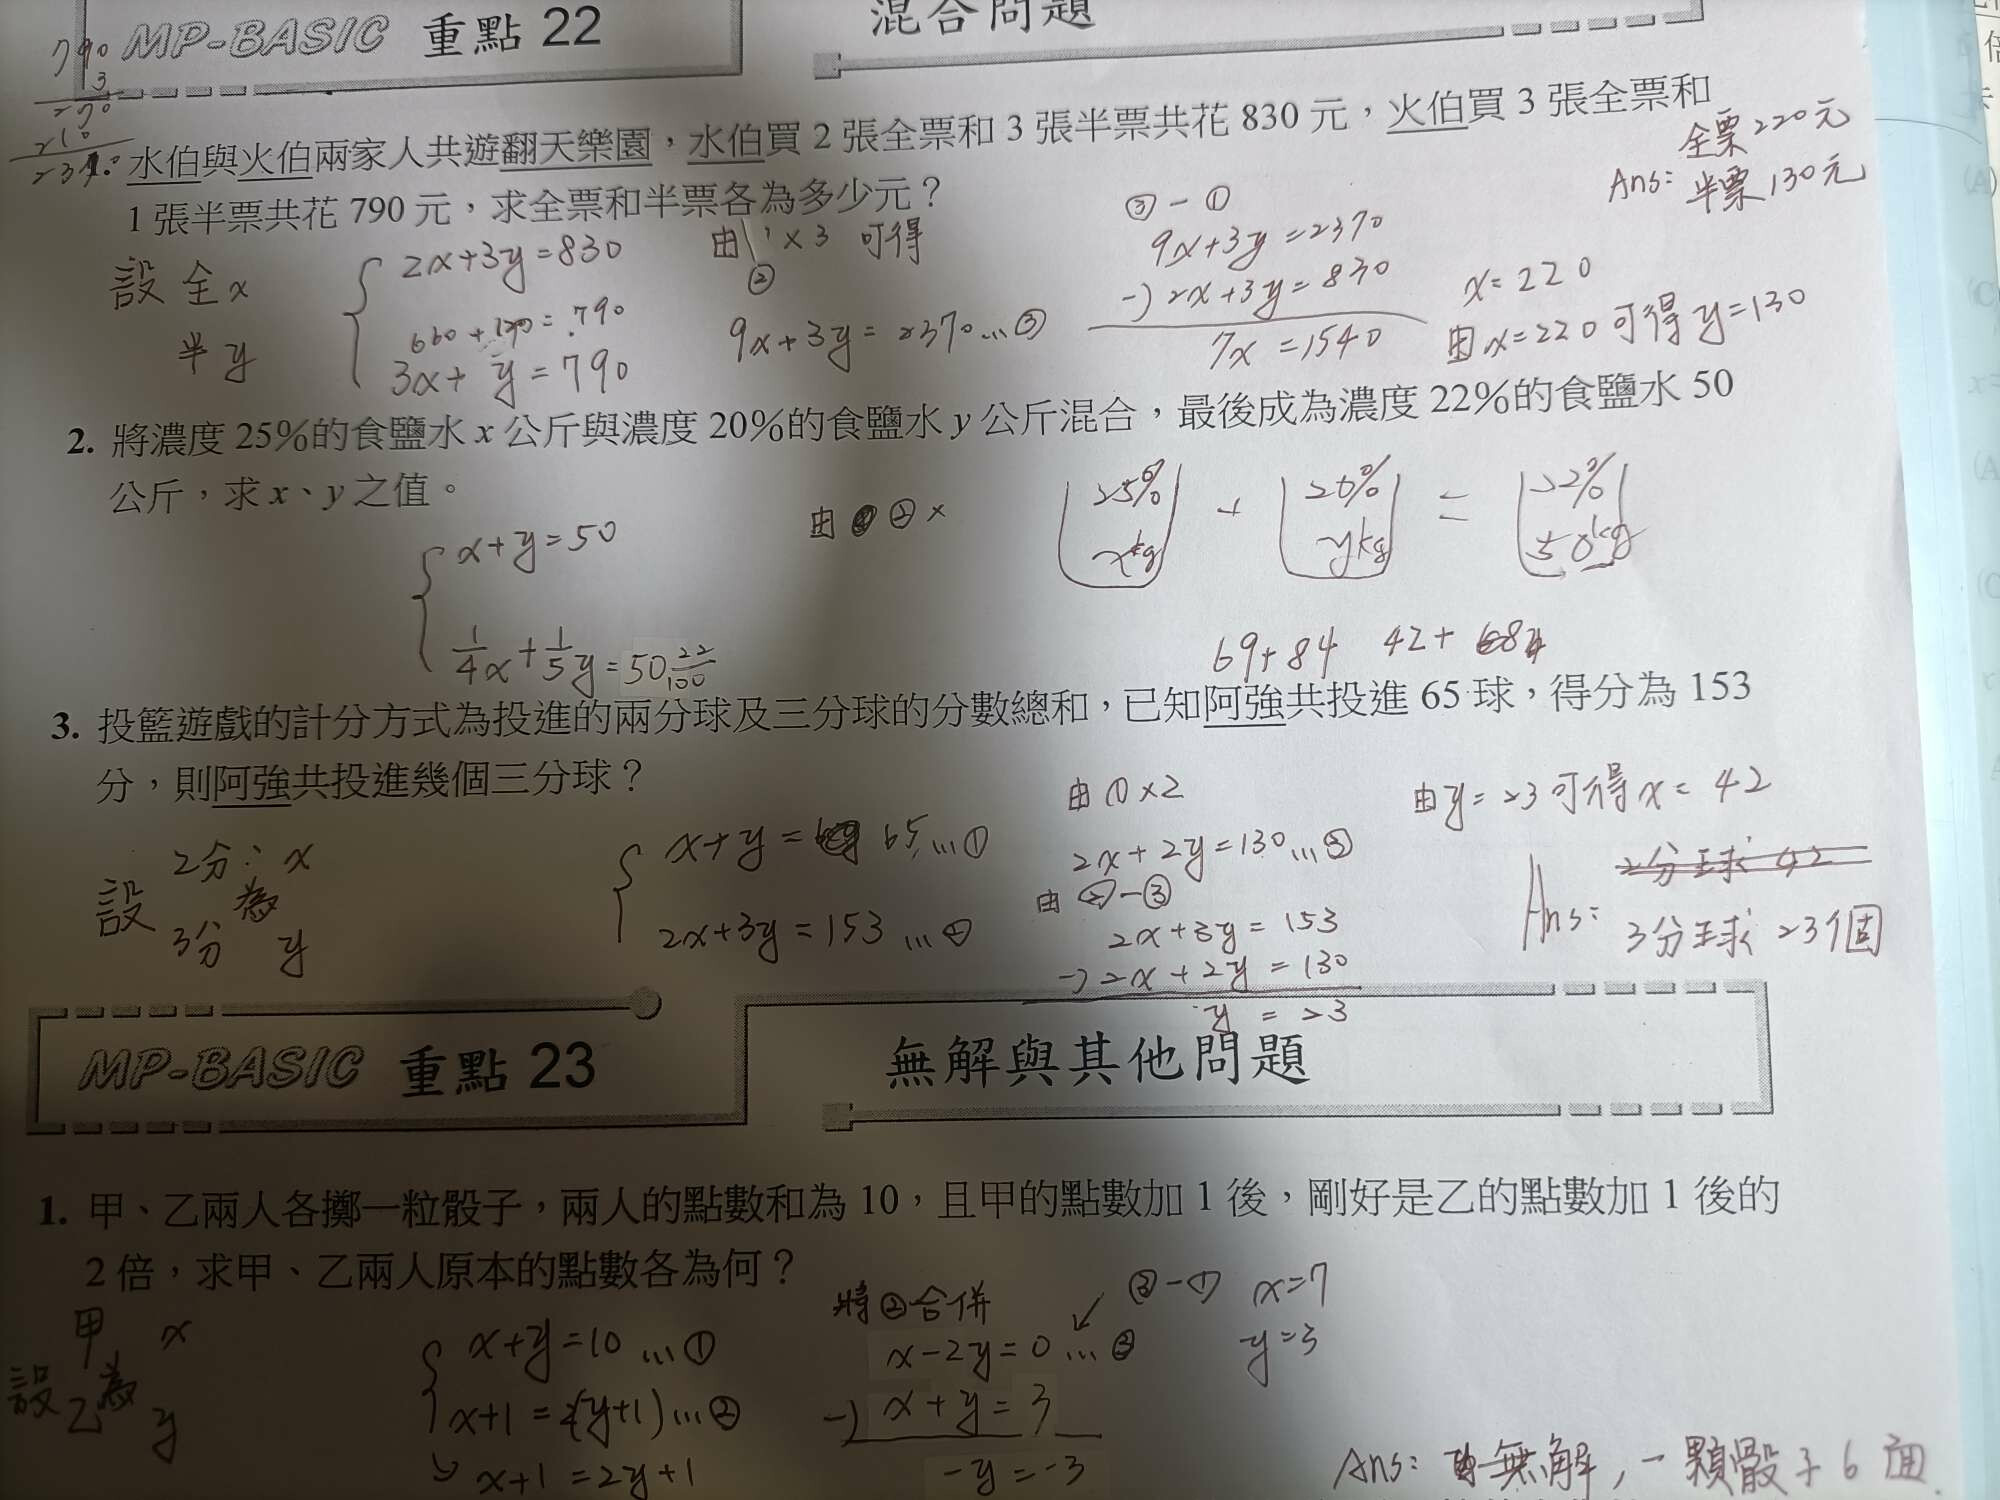 MP-BASIC 重點 22
混合問題
790
3
270
210
2370
1. 水伯與火伯兩家人共遊翻天樂園，水伯買 2 張全票和 3 張半票共花 830 元，火伯買 3 張全票和
1 張半票共花 790 元，求全票和半票各為多少元？
全票220元
Ans: 半票130元
設 全 x
半 y
2x+3y=830
660+130=790
3x+ y=790
由 ×3 可得
②
9x+3y=2370...③
③-①
9x+3y=2370
-) 2x+3y=830
7x =1540
x=220
由x=220可得y=130
2. 將濃度 25%的食鹽水 x 公斤與濃度 20%的食鹽水 y 公斤混合，最後成為濃度 22%的食鹽水 50
公斤，求 x、y 之值。
x+y=50
1/4x+1/5y=50 22/100
由 ② ×
25% + 20% = 22%
xkg ykg 50kg
69+84 42+
3. 投籃遊戲的計分方式為投進的兩分球及三分球的分數總和，已知阿強共投進 65 球，得分為 153
分，則阿強共投進幾個三分球？
設 2分: x
為
3分 y
x+y= 65...①
2x+3y=153...②
由①×2
2x+2y=130...③
由②-③
2x+3y=153
-) 2x+2y=130
y=23
由y=23可得x=42
2分球 42
Ans: 3分球 23個
MP-BASIC 重點 23
無解與其他問題
1. 甲、乙兩人各擲一粒骰子，兩人的點數和為 10，且甲的點數加 1 後，剛好是乙的點數加 1 後的
2 倍，求甲、乙兩人原本的點數各為何？
甲 x
設 為
乙 y
x+y=10...①
x+1=2(y+1)...②
x+1=2y+1
將②合併
x-2y=0...③
-) x+y=3
-y=-3
③-①
x=7
y=3
Ans: 無解，一顆骰子6面